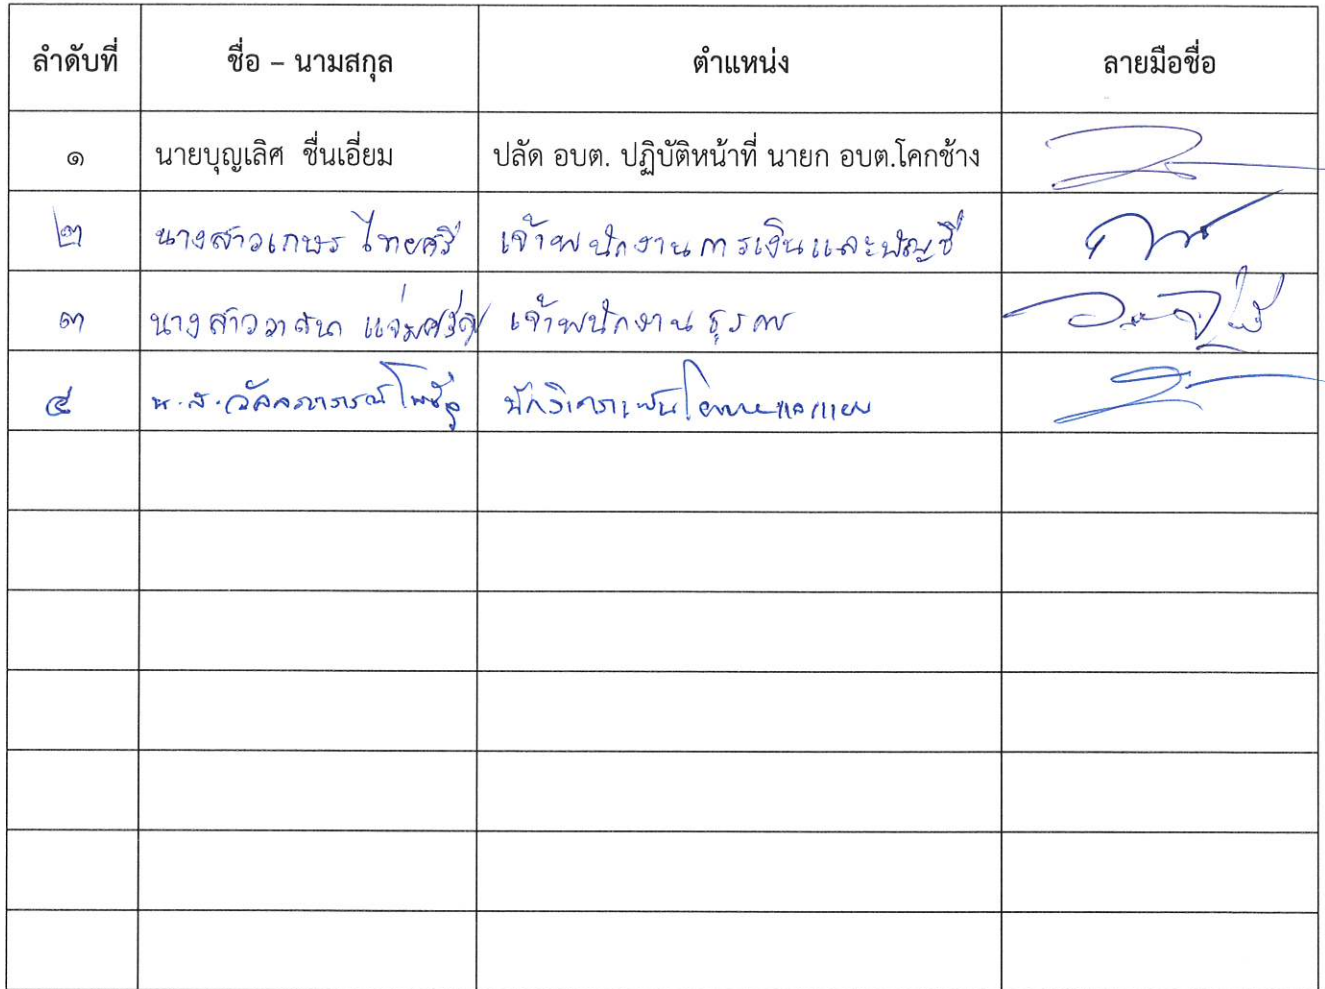 ลำดับที่ ชื่อ – นามสกุล ตำแหน่ง ลายมือชื่อ
๑ นายบุญเลิศ ชื่นเอี่ยม ปลัด อบต. ปฏิบัติหน้าที่ นายก อบต.โคกช้าง
๒ นางสาวเกษร ไทยศรี เจ้าพนักงานการเงินและบัญชี
๓ นางสาว เจ้าพนักงานธุรการ
๔ น.ส. นักวิเคราะห์นโยบายและแผน